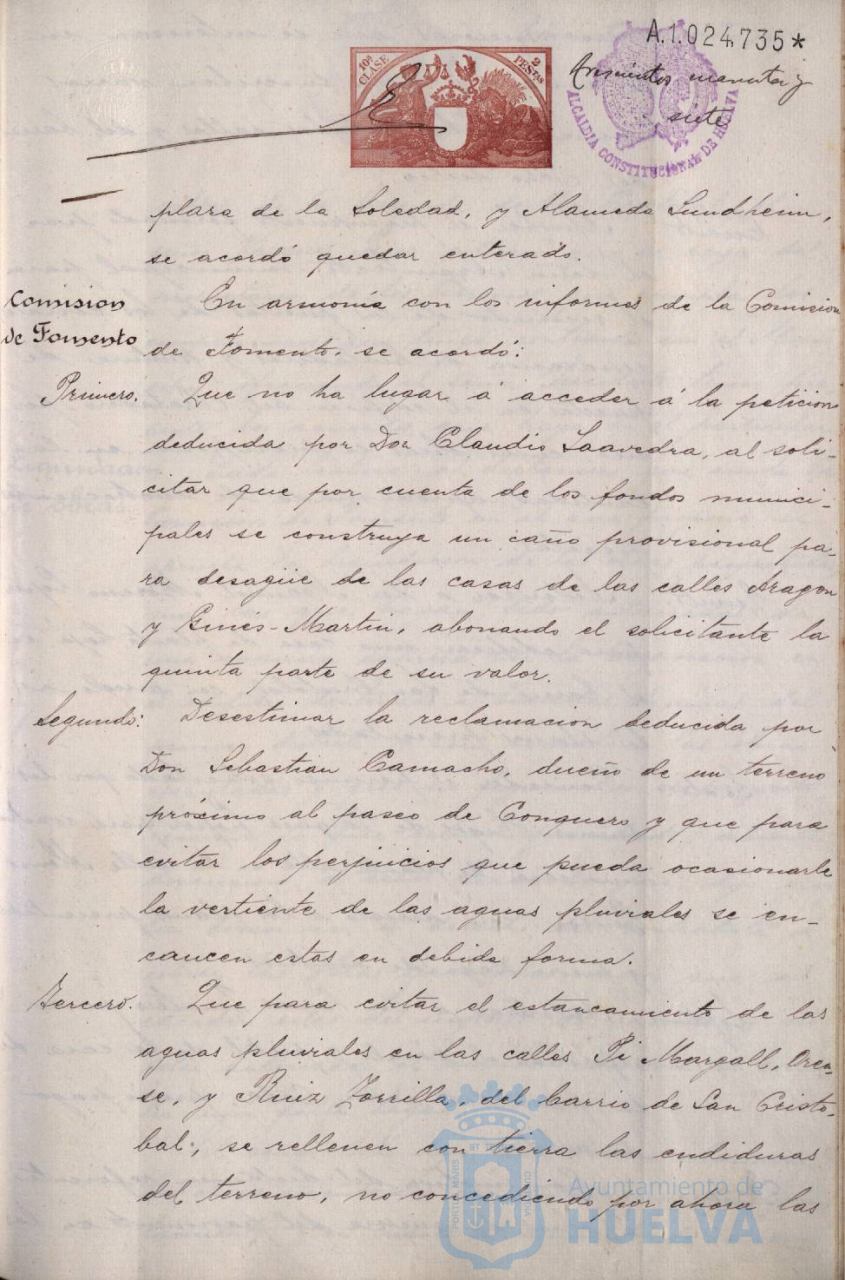 A.1.024,735*
10ª CLASE
2 PESTAS
ALCALDIA CONSTITUCIONAL DE HUELVA
siete
plaza de la Soledad, y Alameda Sundheim,
se acordó quedar enterado.
Comision
de Fomento
En armonía con los informes de la Comision
de Fomento, se acordó:
Primero. Que no ha lugar á acceder á la peticion
deducida por Don Claudio Saavedra, al soli-
citar que por cuenta de los fondos munici-
pales se construya un caño provisional pa-
ra desagüe de las casas de las calles Aragon
y Ginés-Martin, abonando el solicitante la
quinta parte de su valor.
Segundo: Desestimar la reclamacion deducida por
Don Sebastian Camacho, dueño de un terreno
próximo al paseo de Conquero y que para
evitar los perjuicios que pueda ocasionarle
la vertiente de las aguas pluviales se en-
caucen estas en debida forma.
Tercero. Que para evitar el estancamiento de las
aguas pluviales en las calles Pi Margall, Oren-
se, y Ruiz Zorrilla, del barrio de San Cristo-
bal, se rellenen con tierra las endiduras
del terreno, no concediendo por ahora las
Ayuntamiento de
HUELVA